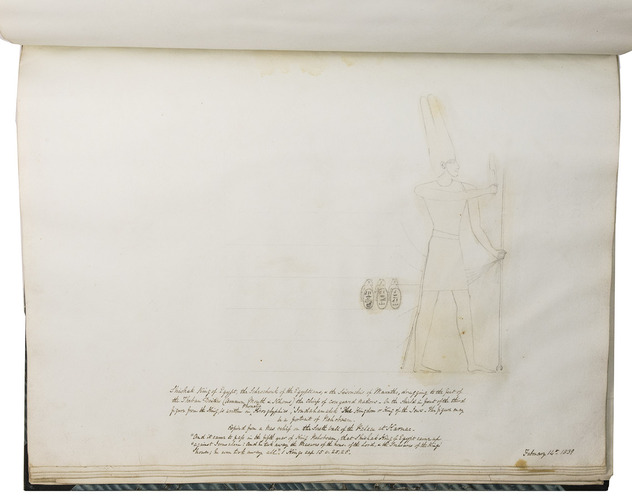 Shishak King of Egypt, the Scheschonk of the Egyptians, & the Sesonchis of Manetho, dragging to the feet of
the Theban Deities (Amun, Mauth & Khons) the chiefs of conquered nations. In the shield in front of the third
figure from the King is written in Phonetic Hieroglyphics, Joudahamalek "The Kingdom or King of the Jews. This figure may
be a portrait of Rehoboam.
Copied from a bas relief on the South wall of the Palace at Karnac.
"And it came to pass in the fifth year of King Rehoboam, that Shishak King of Egypt came up
"against Jerusalem: And he took away the treasures of the house of the Lord, & the treasures of the King's
"house; he even took away all." 1 Kings cap 15 v. 25.26.
February 14th. 1839